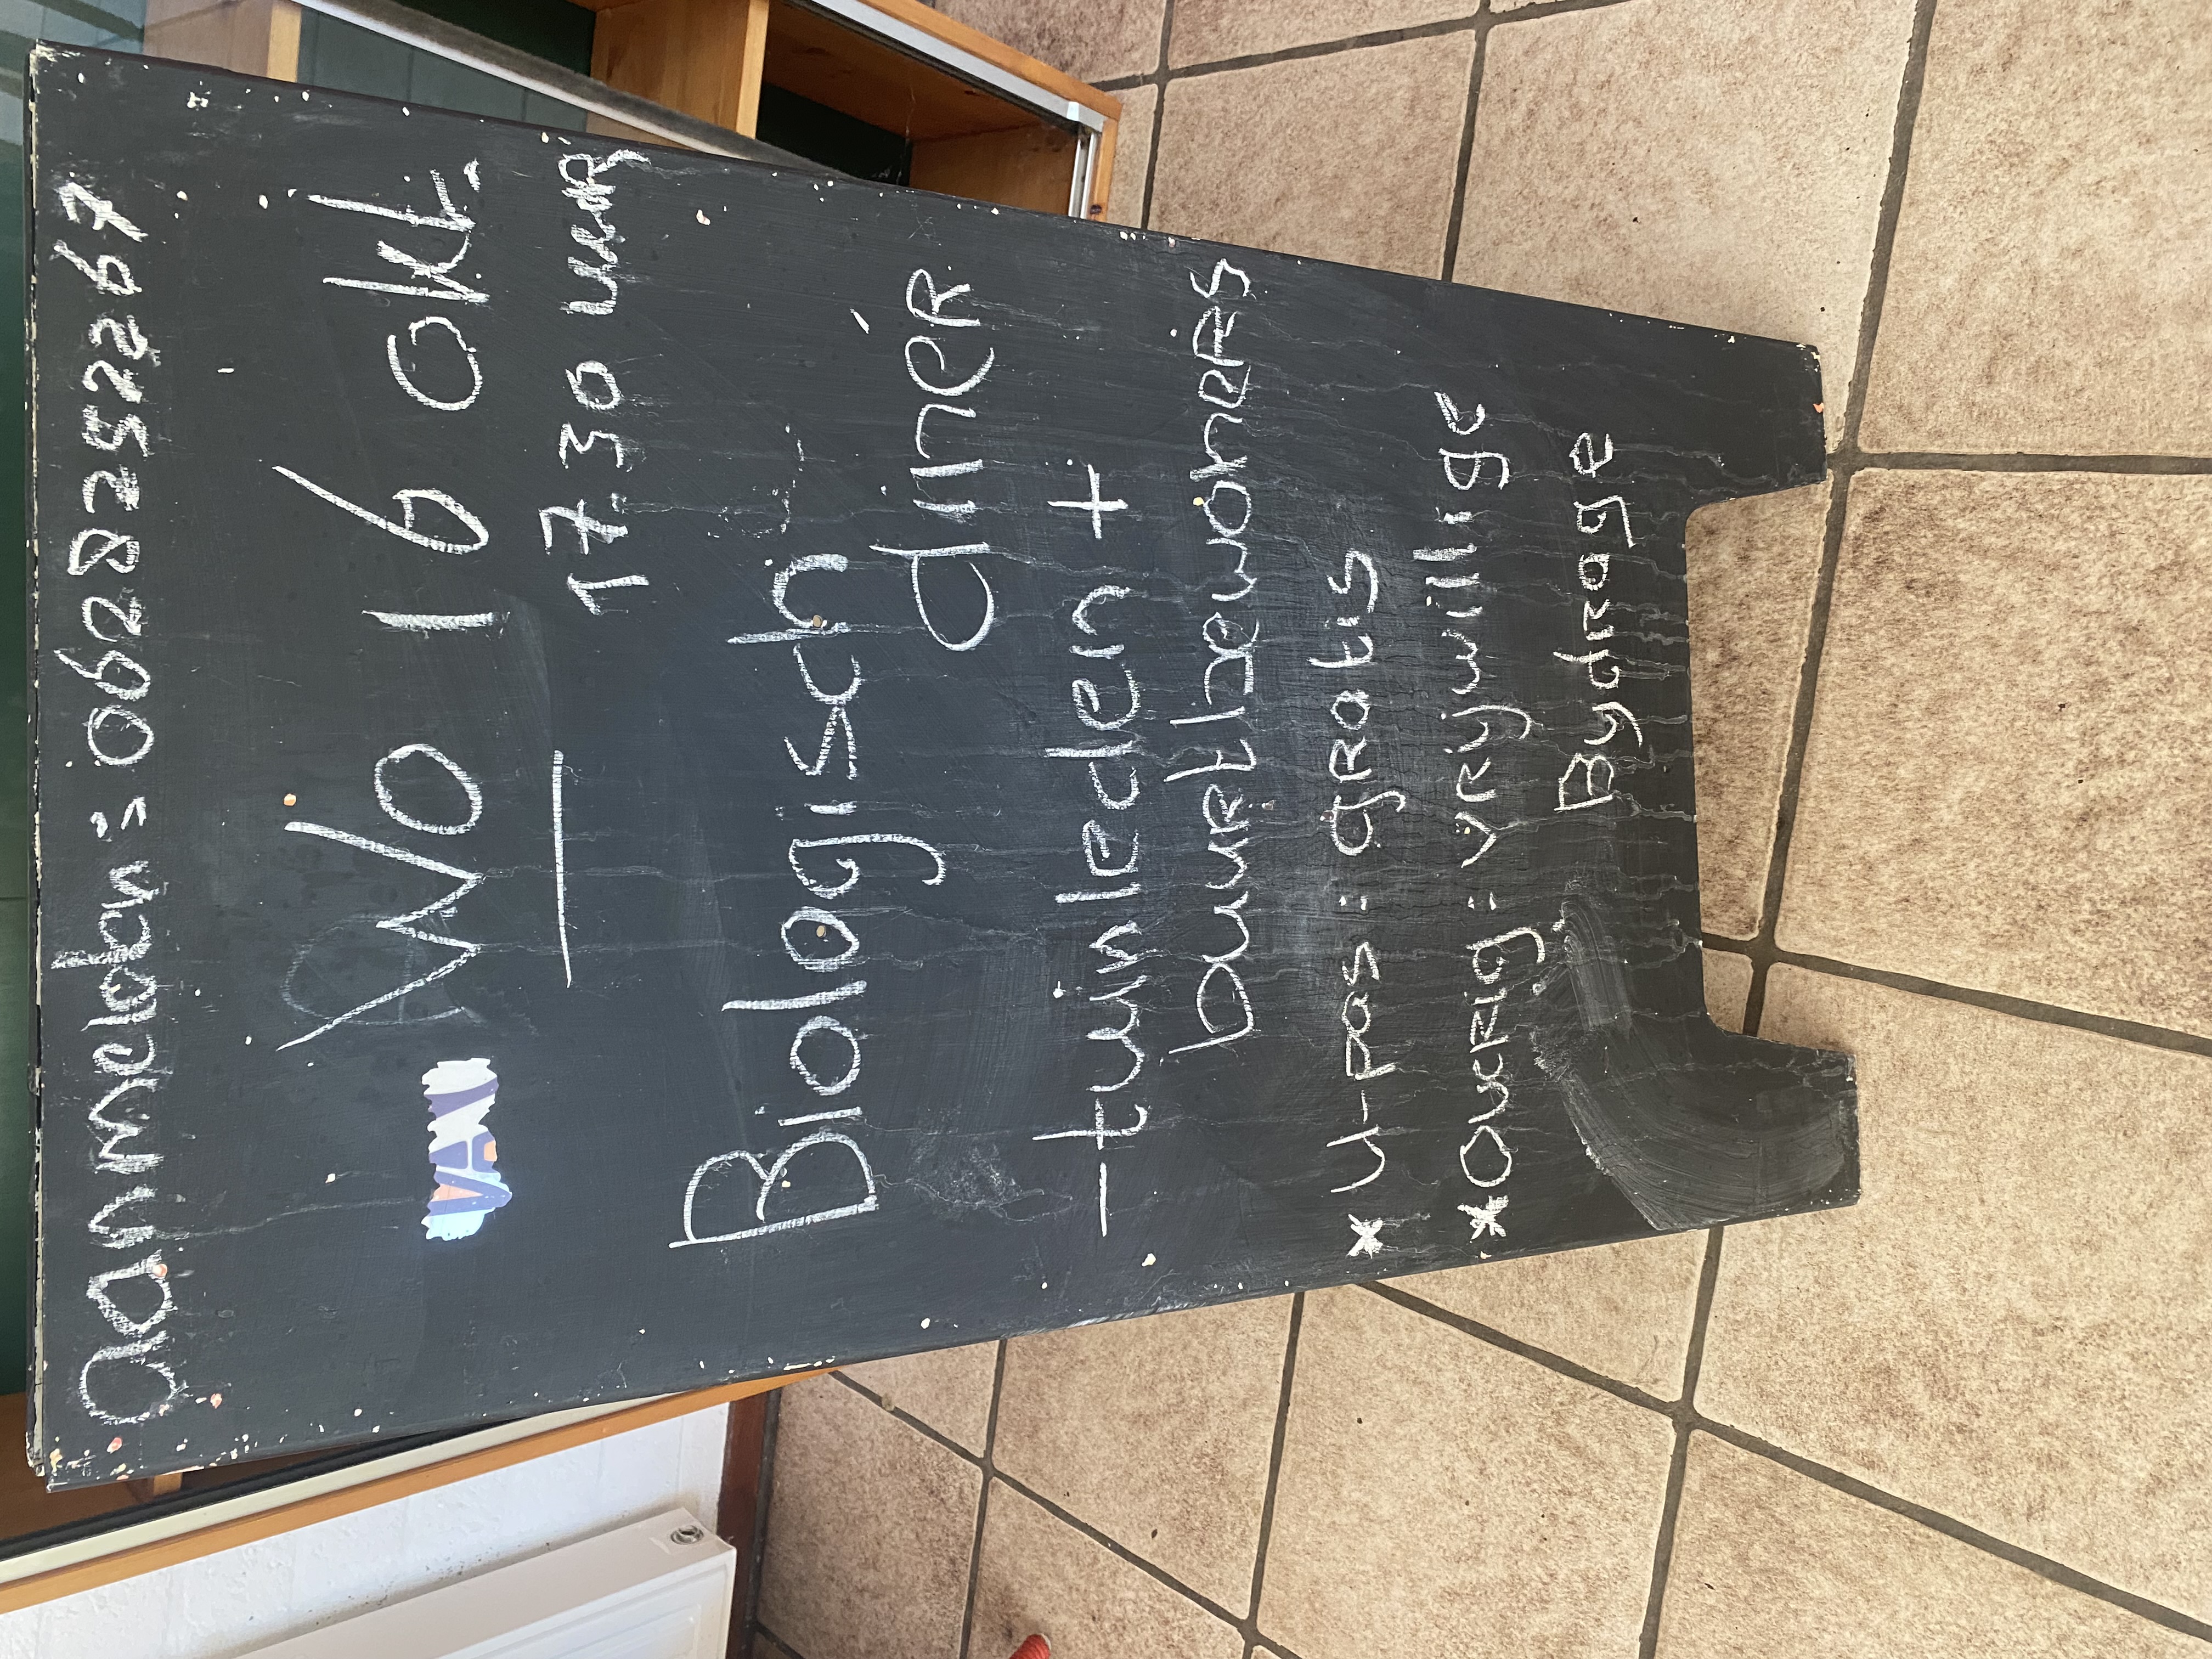 aanmelden: 0628252267
Wo 16 okt.
17.30 uur
Biologisch
diner
- tuinleden +
buurtbewoners
* U-pas: gratis
* Overig: vrijwillige
Bydrage